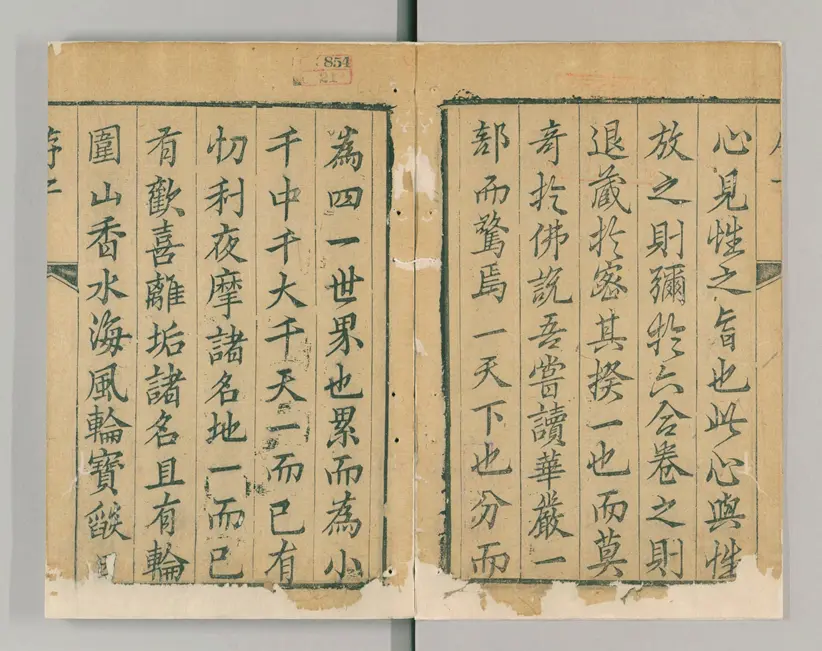 心見性之旨也此心與性
放之則彌於六合卷之則
退藏於密其揆一也而莫
竒於佛說吾嘗讀華嚴一
部而驚焉一天下也分而
為四一世界也累而為小
千中千大千天一而已有
忉利夜摩諸名地一而已
有歡喜離垢諸名且有輪
圍山香水海風輪寶燄
序二
854